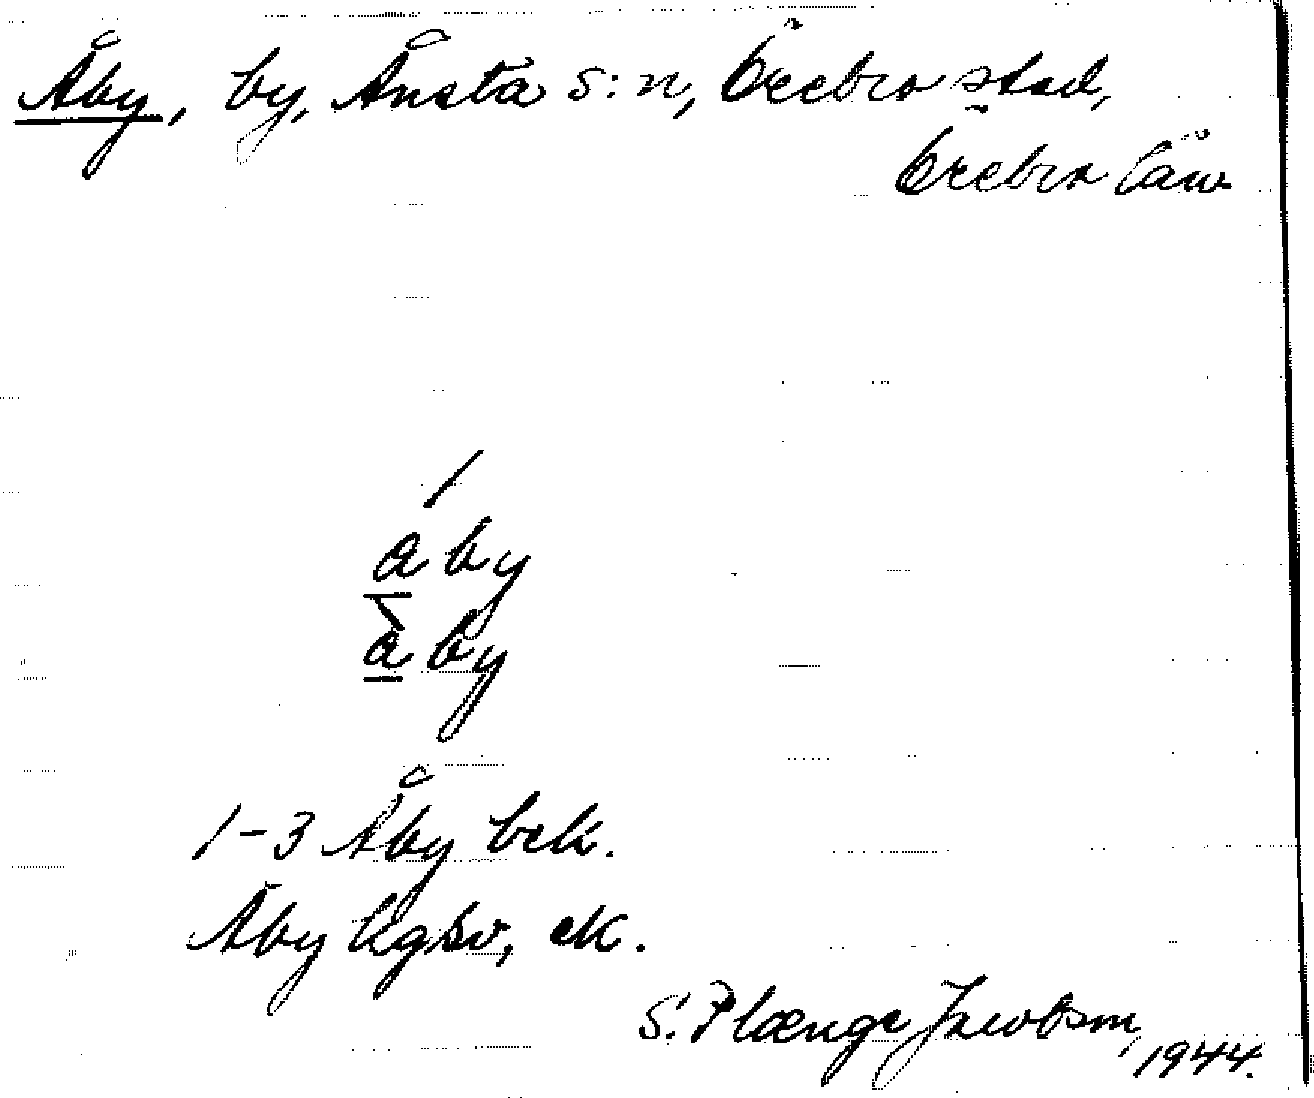 Åby, by, Ånsta s:n, Örebro stad,
Örebro län
åby
åby
1-3 Åby bek.
Åby lgbv, ek.
S. Plænge Jacobson,
1944.